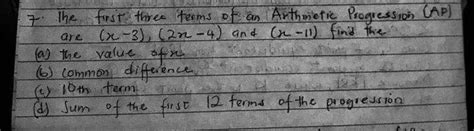 7. The first three terms of an Arithmetic Progression (AP)
are (x-3), (2x-4) and (x-11) find the
(a) the value of x
(b) common difference
(c) 10th term
(d) Sum of the first 12 terms of the progression